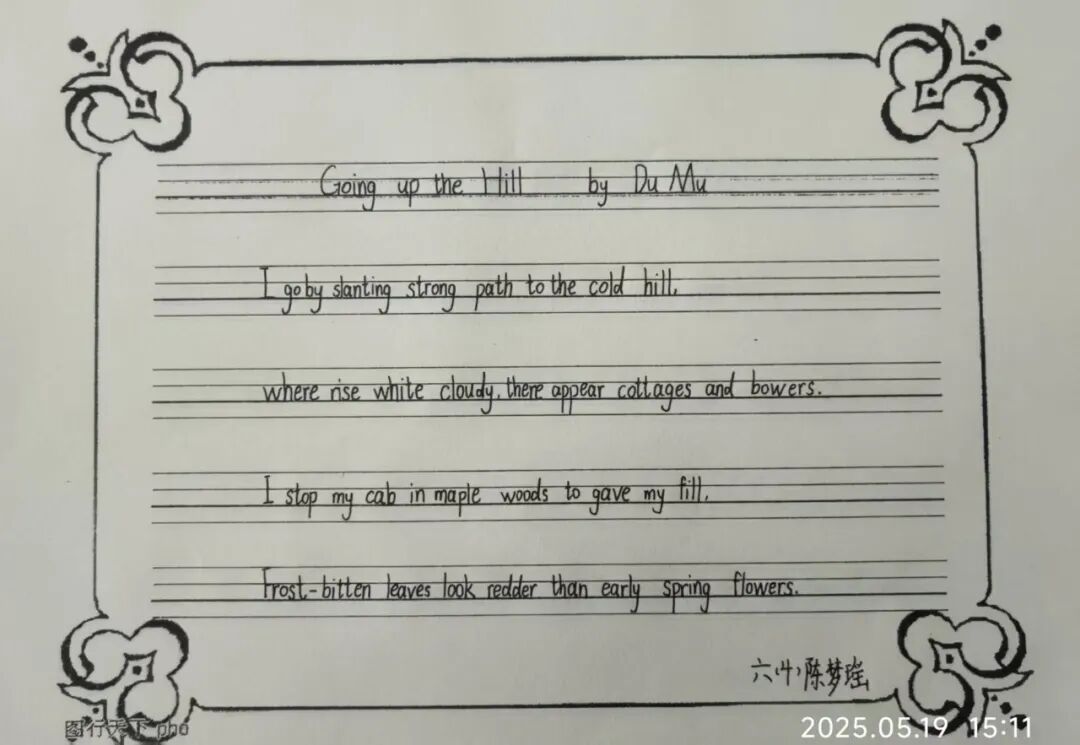 Going up the Hill by Du Mu
I go by slanting strong path to the cold hill,
where rise white cloudy, there appear cottages and bowers.
I stop my cab in maple woods to gave my fill,
Frost-bitten leaves look redder than early spring flowers.
六(4)陈梦瑶
图行天下 pho
2025.05.19 15:11